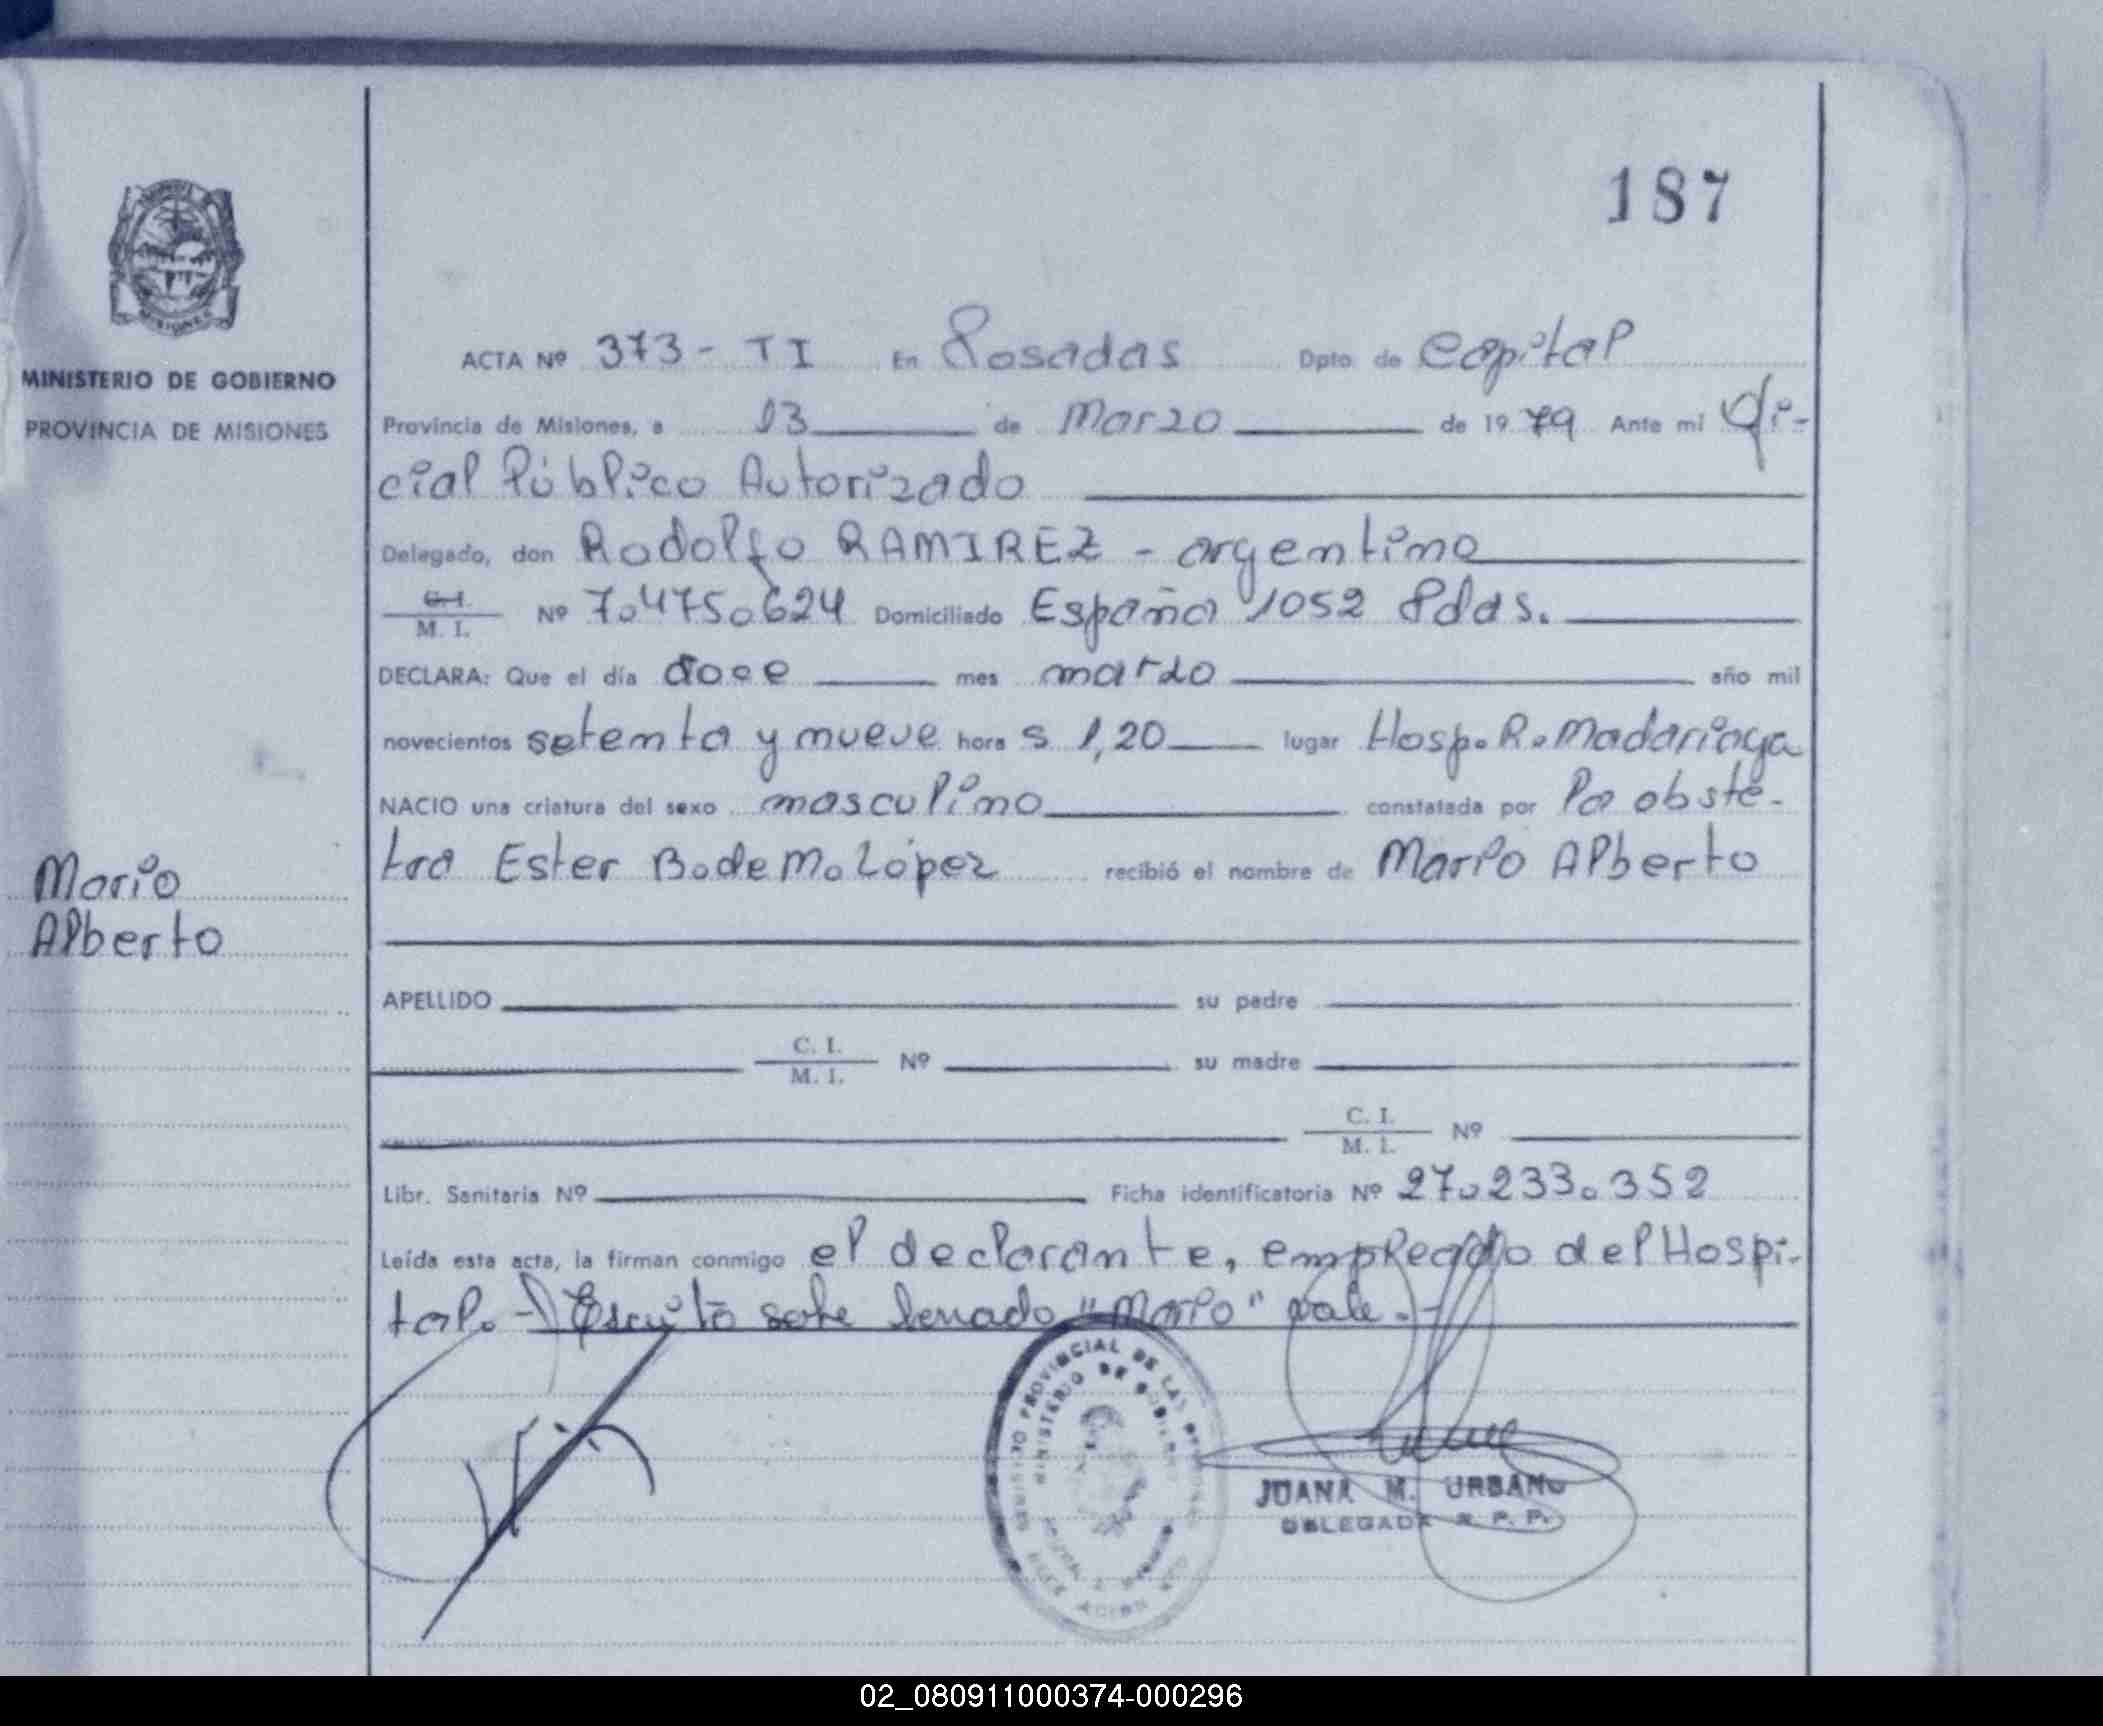 187
MISIONES
MINISTERIO DE GOBIERNO
PROVINCIA DE MISIONES
ACTA Nº 373 - T I En Posadas Dpto. de Capital
Provincia de Misiones, a 13 de Marzo de 1979 Ante mi Ofi-
cial Público Autorizado
Delegado, don Rodolfo RAMIREZ - argentino
C. I.
M. I. Nº 7.475.624 Domiciliado España 1052 Pdas.
DECLARA: Que el día doce mes marzo año mil
novecientos setenta y nueve hora s 1,20 lugar Hosp. R. Madariaga
NACIO una criatura del sexo masculino constatada por la obsté-
tra Ester B. de M. López recibió el nombre de Mario Alberto
Mario
Alberto
APELLIDO su padre
C. I.
M. I. Nº su madre
C. I.
M. I. Nº
Libr. Sanitaria Nº Ficha identificatoria Nº 27.233.352
Leída esta acta, la firman conmigo el declarante, empleado del Hospi-
tal. - Escrito sobre borrado "Mario" vale. -
REGISTRO PROVINCIAL DE LAS PERSONAS
MINISTERIO DE GOBIERNO
JUANA M. URBANO
DELEGADA R. P. P.
02_080911000374-000296